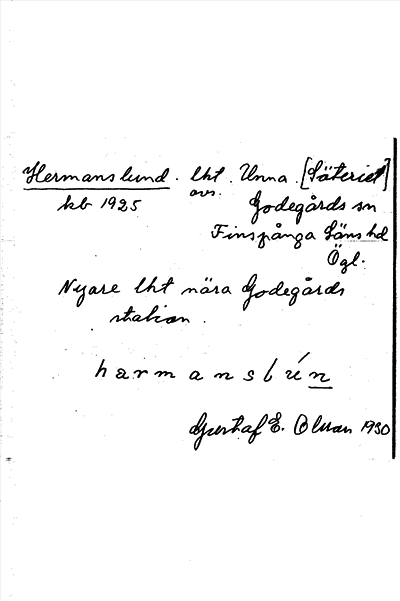 Hermanslund. lht. Unna. [Säteriet]
avs. Godegårds sn
kb 1925
Finspånga läns hd
Ögl.
Nyare lht nära Godegårds
station.
harmanslún
Gustaf E. Olsson 1930